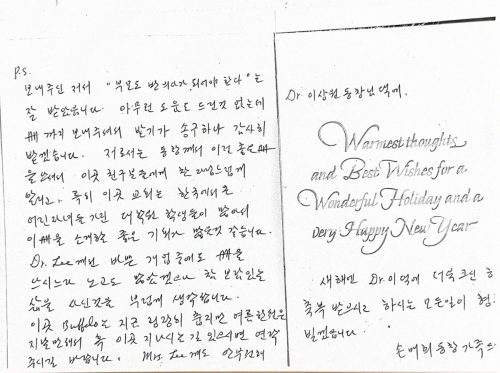 P.S.
보내주신 저서 "부모도 반의사가 되어야 한다"는
잘 받았습니다. 아무런 도움도 드린것 없는데
册 까지 보내주셔서 받기가 송구하나 감사히
받겠습니다. 저로서는 동창께서 이런 좋은 册
을 쓰셔서 이곳 친구분들에게 한
특히 이곳 교회는 한국에서 온
어린 자녀를 가진 대학원 학생들이 많아서
이 册을 소개할 좋은 기회가 많을것 같습니다.
Dr. Lee께서 바쁜 개업중에도 册을
쓰시느라 노고도 많으셨으나 참 보람있는
삶을 사신것을 부럽게 생각합니다.
이곳 Buffalo는 지금 굉장히 춥지만 여름한철은
지낼만해서 혹 이곳 지나시는 길 있으시면 연락
주시길 바랍니다. Mrs Lee께도 안부전해
Dr. 이상원 동창님 댁에.
Warmest thoughts
and Best Wishes for a
Wonderful Holiday and a
very Happy New Year
새해엔 Dr 이 댁에 더욱 크신
축복 받으시고 하시는 모든일이 형
빌겠습니다
손 동창 가족